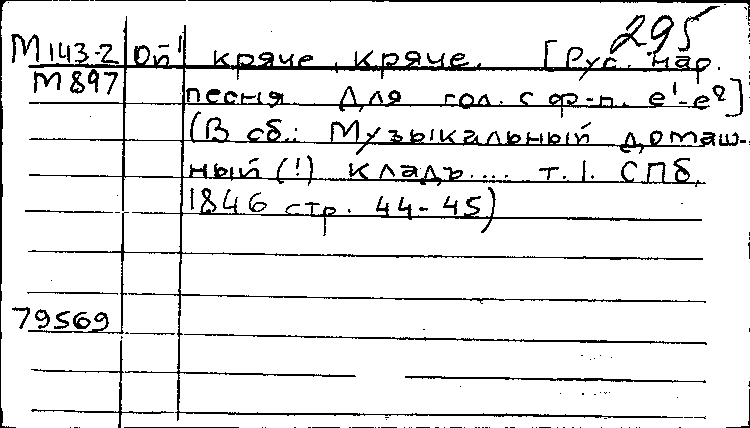 295
М143-2 Ой! кряче, кряче. [Рус. нар.
М897 песня. Для гол. с ф-п. e¹-e²]
(В сб.: Музыкальный домаш-
ный (!) кладъ.... т. 1. СПб,
1846 стр. 44-45)
79569